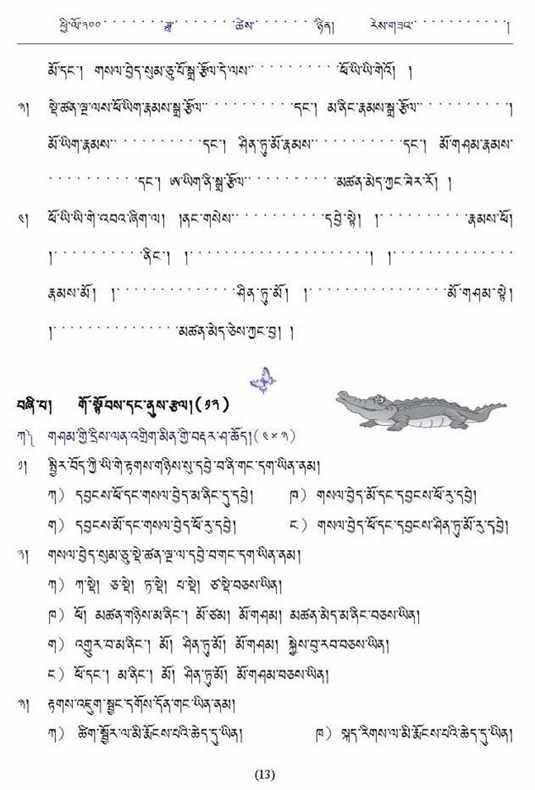 ཕྱི་ལོ་༢༠༠ ........ ཟླ ........ ཚེས ........ ཉིན། རེས་གཟའ ............ །
མོ་དང་། གསལ་བྱེད་སུམ་ཅུ་པོ་སྒྲ་རྩོལ་དེ་ལས ......... ཕོ་ཡི་ཡི་གེའོ། །
༣། སྡེ་ཚན་ལྔ་ལས་ཕོ་ཡིག་རྣམས་སྒྲ་རྩོལ ......... དང་། མ་ནིང་རྣམས་སྒྲ་རྩོལ ......... །
མོ་ཡིག་རྣམས ......... དང་། ཤིན་ཏུ་མོ་རྣམས ......... དང་། མོ་གཤམ་རྣམས་
......... དང་། ཨ་ཡིག་ནི་སྒྲ་རྩོལ ......... མཚན་མེད་ཀྱང་ཟེར་རོ། །
༤། ཕོ་ཡི་ཡི་གེ་འབའ་ཞིག་ལ། །ནང་གསེས ......... དབྱེ་སྟེ། ། ......... རྣམས་ཕོ།
། ......... ནིང་། ། .................. ། ། ............
རྣམས་མོ། ། ............ ཤིན་ཏུ་མོ། ། ............ མོ་གཤམ་སྟེ།
། ............ མཚན་མེད་ཅེས་ཀྱང་བྱ། །
བཞི་པ། གོ་སྟོབས་དང་ནུས་རྩལ། (༡༢)
ཀ༽ གཤམ་གྱི་དྲིས་ལན་འགྲིག་མིན་གྱི་བརྡར་ཤ་ཆོད། (༤×༣)
༡། སྤྱིར་བོད་ཀྱི་ཡི་གེ་རྟགས་གཉིས་སུ་དབྱེ་བ་ནི་གང་དག་ཡིན་ནམ།
ཀ) དབྱངས་ཕོ་དང་གསལ་བྱེད་མ་ནིང་དུ་དབྱེ། ཁ) གསལ་བྱེད་མོ་དང་དབྱངས་ཕོ་རུ་དབྱེ།
ག) དབྱངས་མོ་དང་གསལ་བྱེད་ཕོ་རུ་དབྱེ། ང) གསལ་བྱེད་ཕོ་དང་དབྱངས་ཤིན་ཏུ་མོ་རུ་དབྱེ།
༢། གསལ་བྱེད་སུམ་ཅུ་སྡེ་ཚན་ལྔ་ལ་དབྱེ་བ་གང་དག་ཡིན་ནམ།
ཀ) ཀ་སྡེ། ཅ་སྡེ། ཏ་སྡེ། པ་སྡེ། ཙ་སྡེ་བཅས་ཡིན།
ཁ) ཕོ། མཚན་གཉིས་མ་ནིང་། མོ་ཙམ། མོ་གཤམ། མཚན་མེད་མ་ནིང་བཅས་ཡིན།
ག) འགྱུར་བ་མ་ནིང་། མོ། ཤིན་ཏུ་མོ། མོ་གཤམ། སྐྱེས་བུ་རབ་བཅས་ཡིན།
ང) ཕོ་དང་། མ་ནིང་། མོ། ཤིན་ཏུ་མོ། མོ་གཤམ་བཅས་ཡིན།
༣། རྟགས་འཇུག་སྦྱང་དགོས་དོན་གང་ཡིན་ནམ།
ཀ) ཚིག་སྦྱོར་ལ་མི་རྨོངས་པའི་ཆེད་དུ་ཡིན། ཁ) སྐད་རིགས་ལ་མི་རྨོངས་པའི་ཆེད་དུ་ཡིན།
(13)